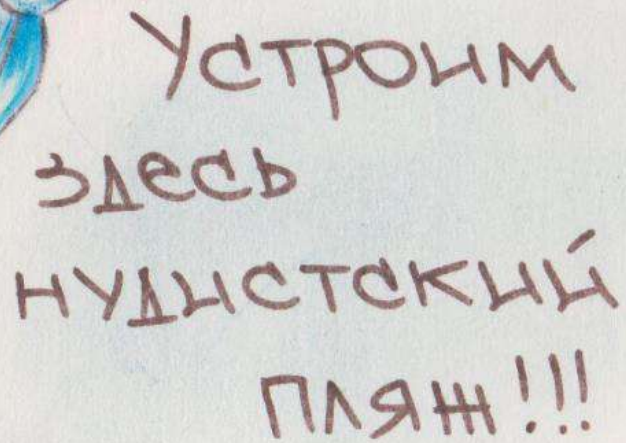 Устроим
здесь
нудистский
пляж!!!